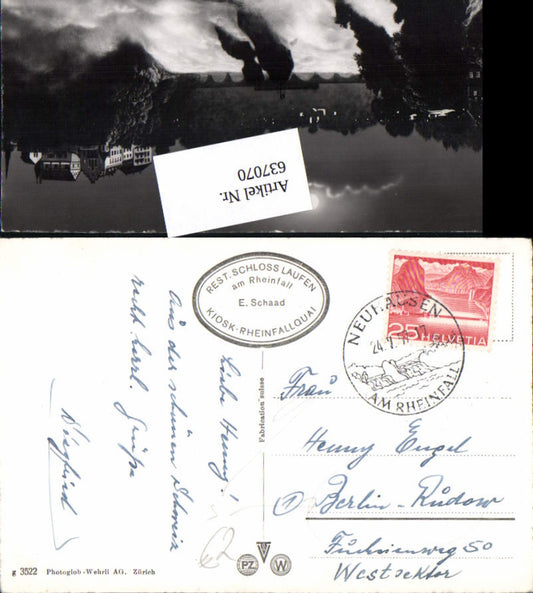 Artikel Nr.
637070
REST. SCHLOSS LAUFEN
am Rheinfall
E. Schaad
KIOSK-RHEINFALLQUAI
NEUHAUSEN
AM RHEINFALL
25 HELVETIA
Liebe Henny!
Aus der schönen Schweiz
recht herzl. Grüße
Siegfried
Fabrication suisse
Frau
Henny Engel
Berlin-Rudow
Fuchsienweg 50
Westsektor
62
PZ
W
g 3522 Photoglob-Wehrli AG, Zürich